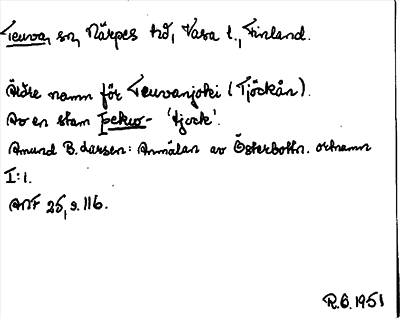 Teuva, sn, Närpes hd, Vasa l., Finland.
Äldre namn för Teuvanjoki (Tjöckån).
Av en stam þekwo- 'tjock'.
Amund B. Larsen: Anmälan av Österbottn. ortnamn
I:1.
ANF 25, s. 116.
R.Ö. 1951